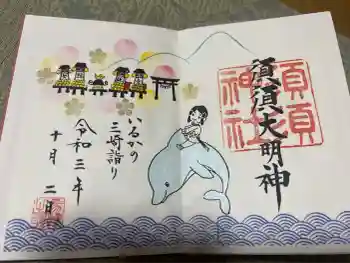 須須大明神
須須神社
いるかの
三崎詣り
令和三年
十月二日